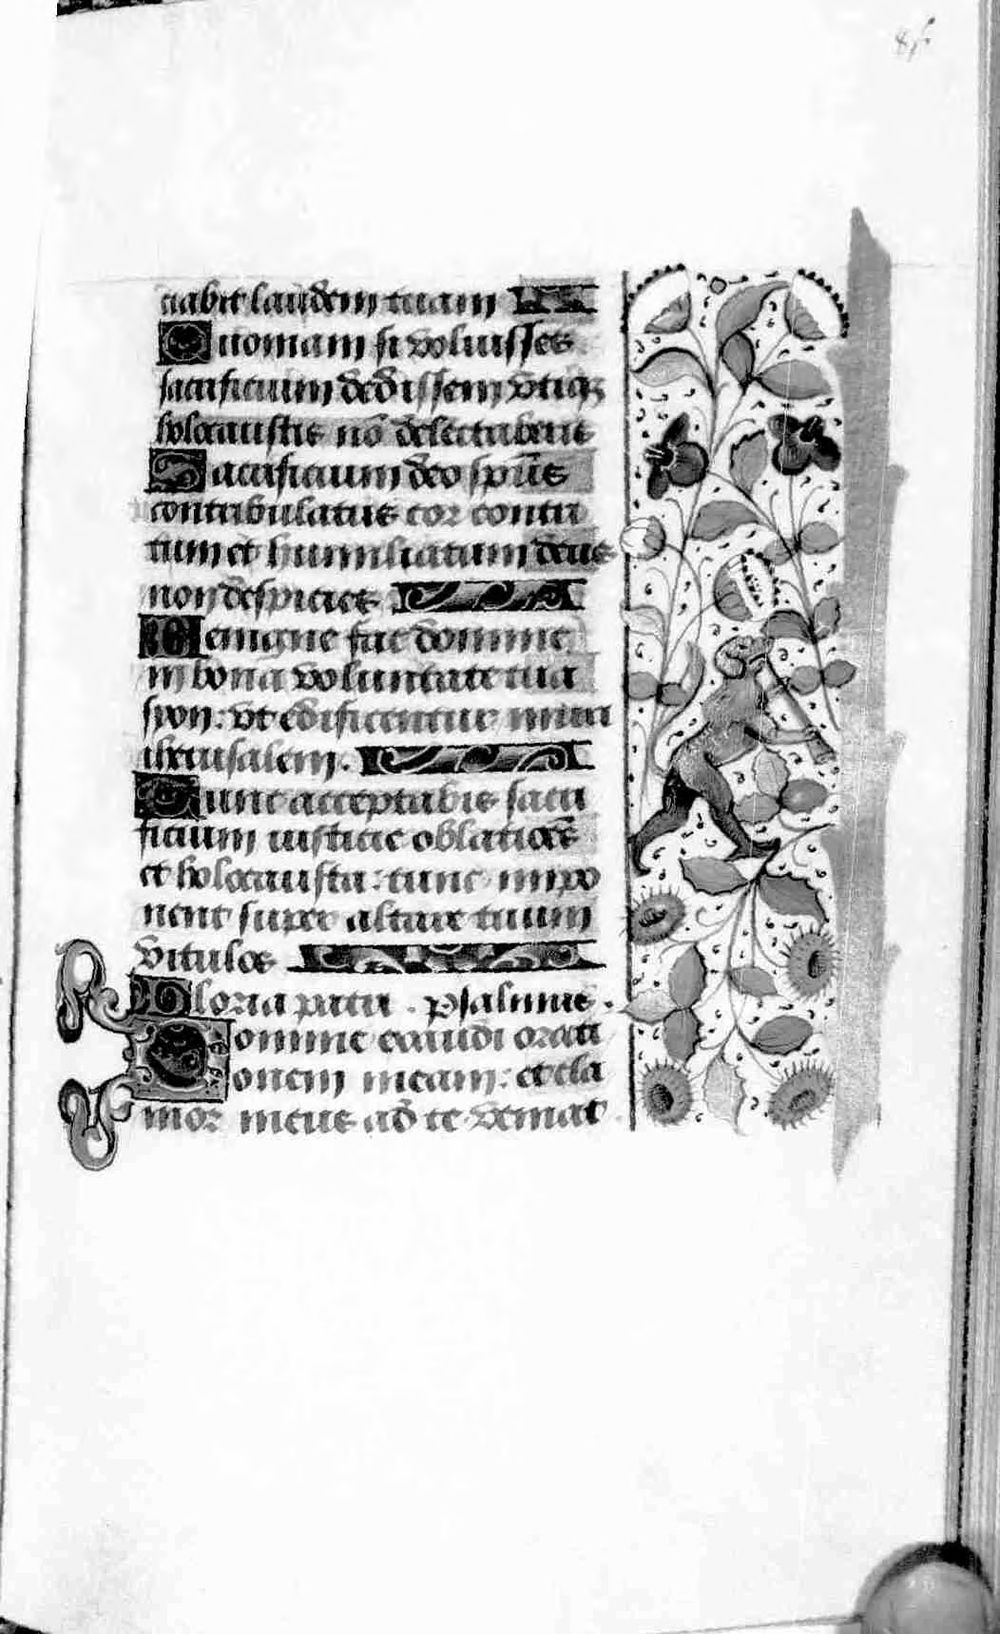 ciabit laudem tuam
Quoniam si voluisses
sacrificium dedissem vtiqz
holocaustis nō delectaberis
Sacrificium deo spūs
contribulatus cor contri
tum et humiliatum deus
non despicies
Benigne fac domine
in bona voluntate tua
sion: vt edificentur muri
iherusalem.
Tunc acceptabis sacri
ficium iusticie oblatiões
et holocausta: tunc impo
nent super altare tuum
vitulos
Gloria patri. psalmus.
Domine exaudi orati
onem meam: et cla
mor meus ad te veniat